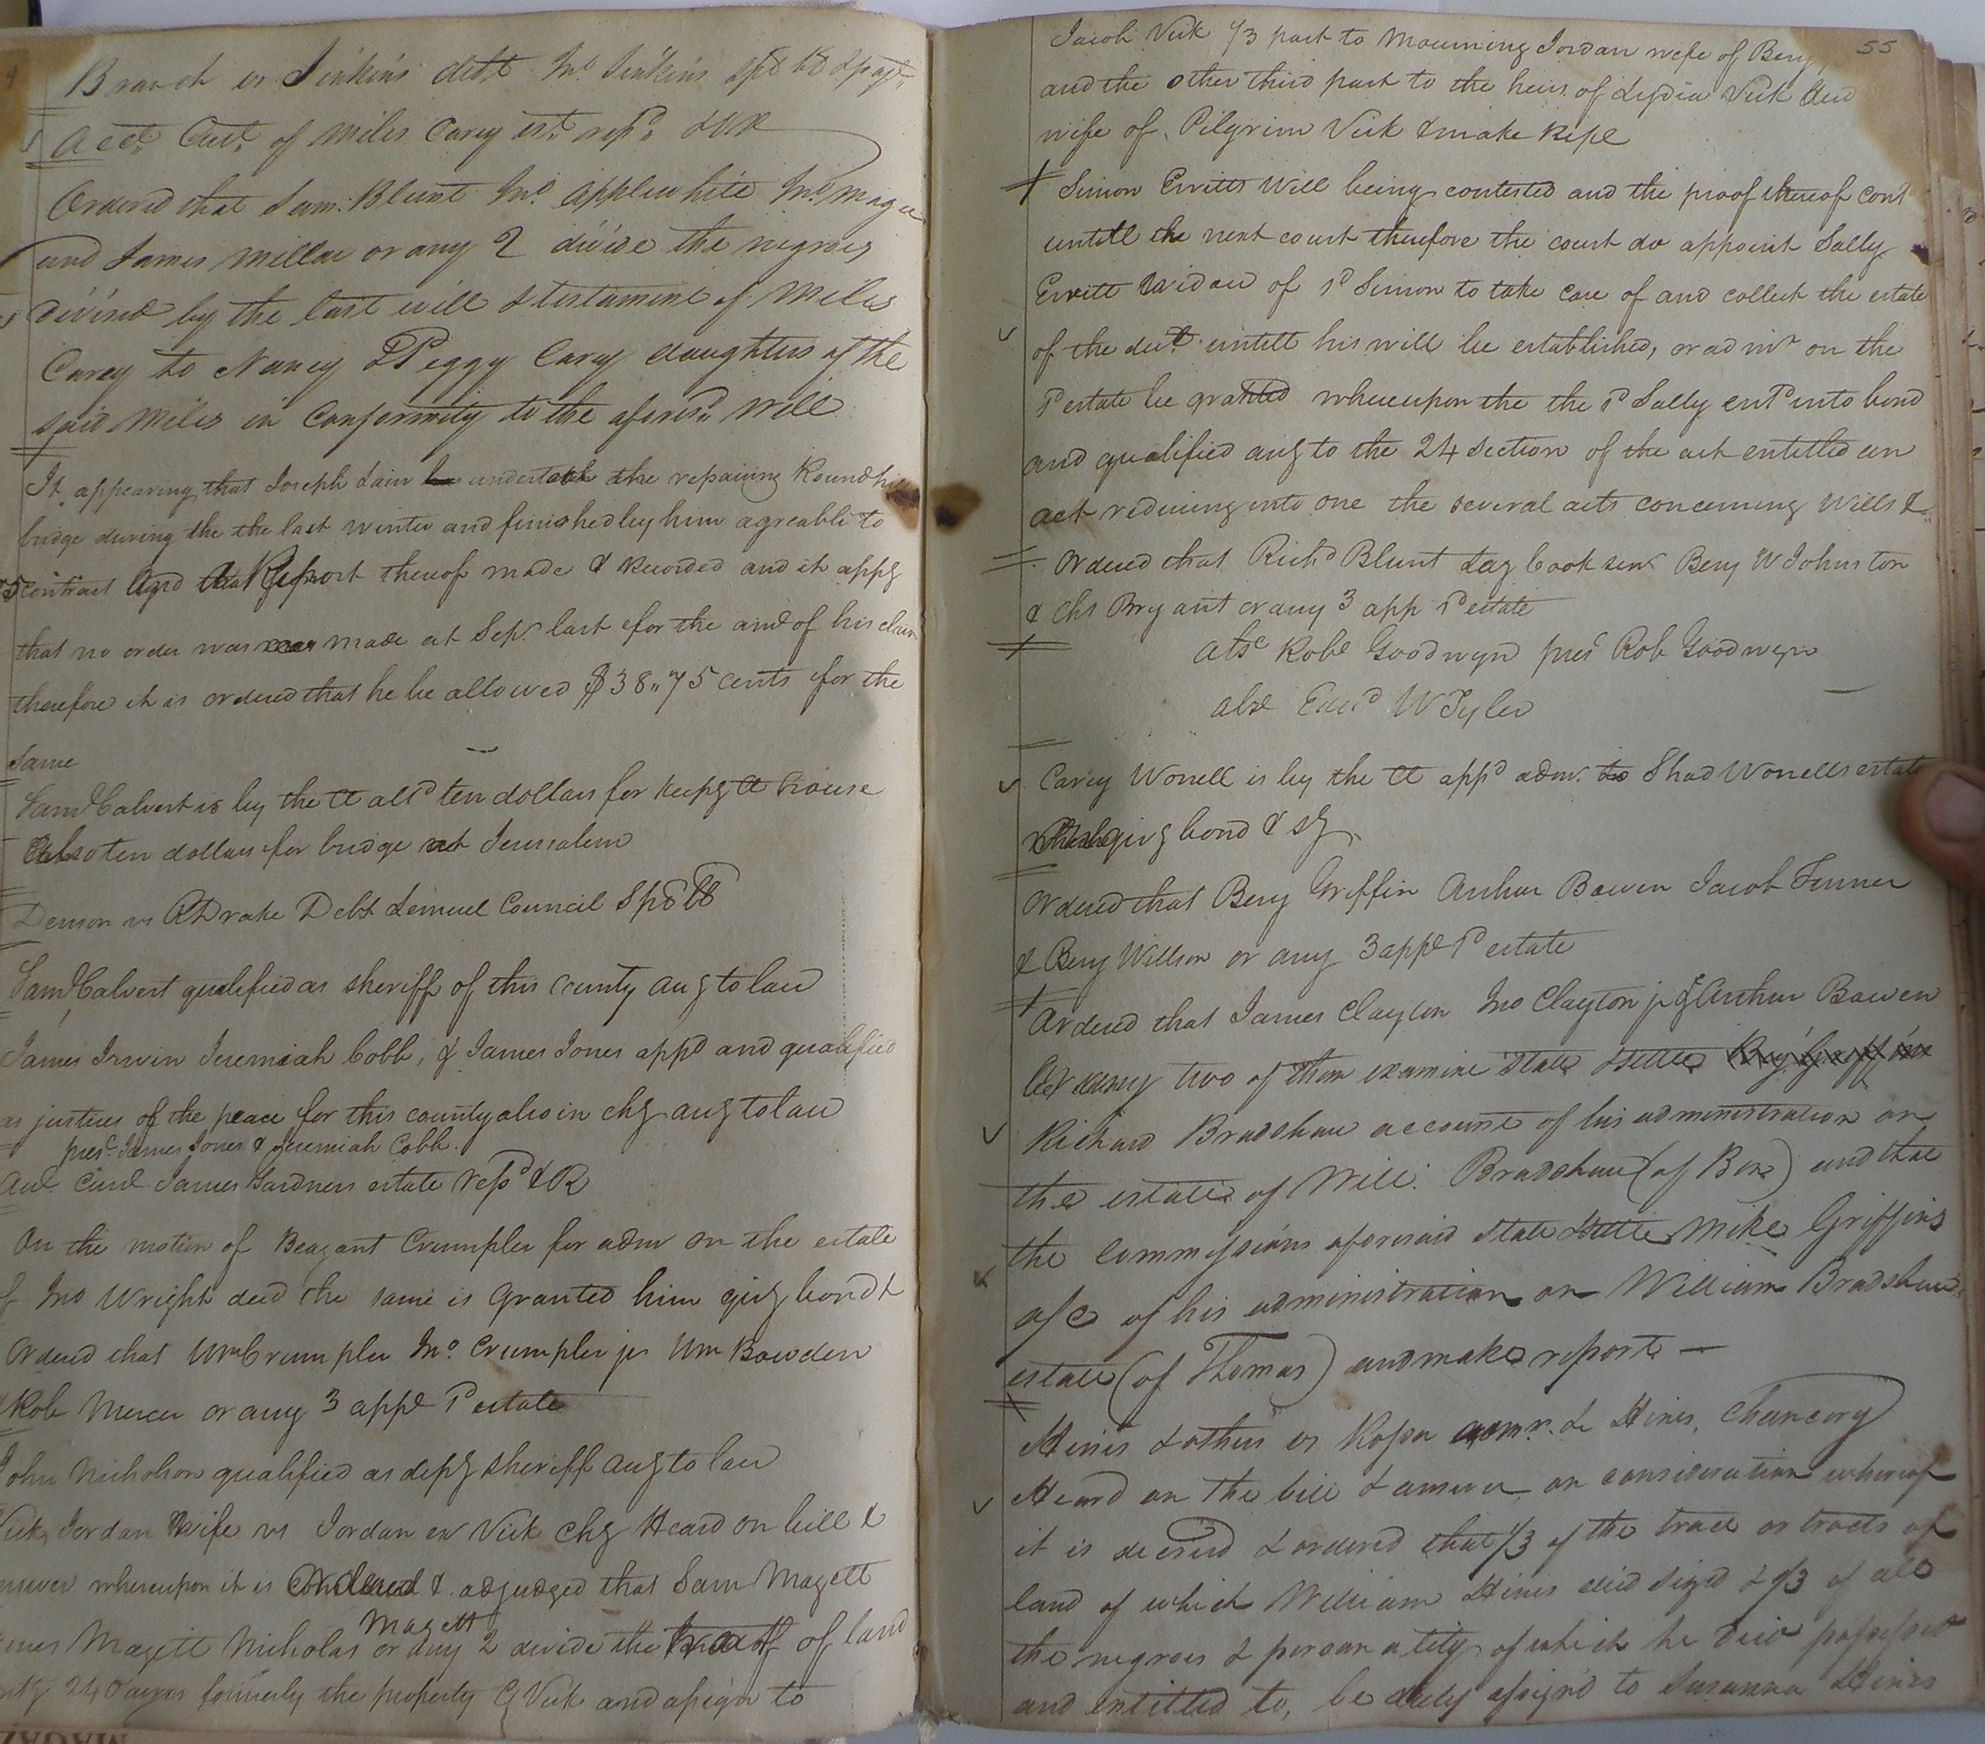 Branch vs Jenkins debt Jno Jenkins spl bl
Acct Curt of Miles Carey est. ret.
Ordered that Sam: Blunt Jno Applewhite Jno Magee
and James Millar or any 2 divide the negroes
devised by the last will & testament of Miles
Carey to Nancy & Peggy Cary daughters of the
said Miles in Conformity to the aforesd. Will
It appearing that Joseph Lain undertook the repairing Roundhill
bridge during the the last winter and finished by him agreable to
contract And that Report thereof made & recorded and it appg
that no order was made at Sepr. last for the amt of his claim
therefore it is ordered that he be allowed $38..75 cents for the
same
Saml Calvert is by the Ct ald ten dollars for keepg Ct house
Also ten dollars for bridge at Jerusalem
Denson vs Drake Debt Lemuel Council Sp bl
Saml Calvert qualified as sheriff of this county aug to law
James Irwin Jeremiah Cobb, & James Jones appd and qualified
as justices of the peace for this county also in chy aug to law
pres. James Jones & Jeremiah Cobb.
Aud. Curt James Gardners estate retd & R
On the motion of Beazant Crumpler for adm on the estate
of Jno Wright decd the same is granted him givg bond &
Ordered that Wm Crumpler Jno. Crumpler jr Wm Bowden
Rob Mercer or any 3 appr sd estate
John Nicholson qualified as depy sheriff aug to law
Vick, Jordan & wife vs Jordan ex Vick chy Heard on bill &
answer whereupon it is Ordered & adjudged that Sam Magett
Magett
James Magett Nicholas or any 2 divide the tract of land
240 acres formerly the property Vick and assign to
55
Jacob Vick 1/3 part to Mourning Jordan wife of Benj
and the other third part to the heirs of Lydia Vick decd
wife of Pilgrim Vick & make Repl
Simon Evritts Will being contested and the proof thereof cont
untill the next court therefore the court do appoint Sally
Evritt Widow of sd Simon to take care of and collect the estate
of the decd. untill his will be established, or admr on the
sd estate be granted whereupon the the sd Sally entd into bond
and qualified aug to the 24 section of the act entitled an
act reducing into one the several acts concerning Wills &
Ordered that Richd Blunt Laz Cook senr Benj W Johnston
& Chs Bryant or any 3 app sd estate
abs Robt Goodwyn pres Rob Goodwyn
abs Edwd W Tyler
Carey Worrell is by the Ct appd adm. to Shad Worrells estate
givg bond & sy
Ordered that Benj Griffin Arthur Bowen Jacob Turner
& Benj Willson or any 3 appr sd estate
Ordered that James Clayton Jno Clayton jr & Arthur Bowen
or any two of them examine state & settle Benj Griffin
Richard Bradshaw account of his administration on
the estate of Will. Bradshaw (of Ben) and that
the commissions aforesaid state & settle Mike Griffins
a/c of his administration on William Bradshaws
estate (of Thomas) and make report —
Hines & others vs Rosser admr. & Hines, Chancery
Heard on the bill & answer on consideration whereof
it is decreed & ordered that 1/3 of the tract or tracts of
land of which William Hines died sized & 1/3 of all
the negroes & personality of which he died possessed
and entitled to, be duly assign'd to Susanna Hines